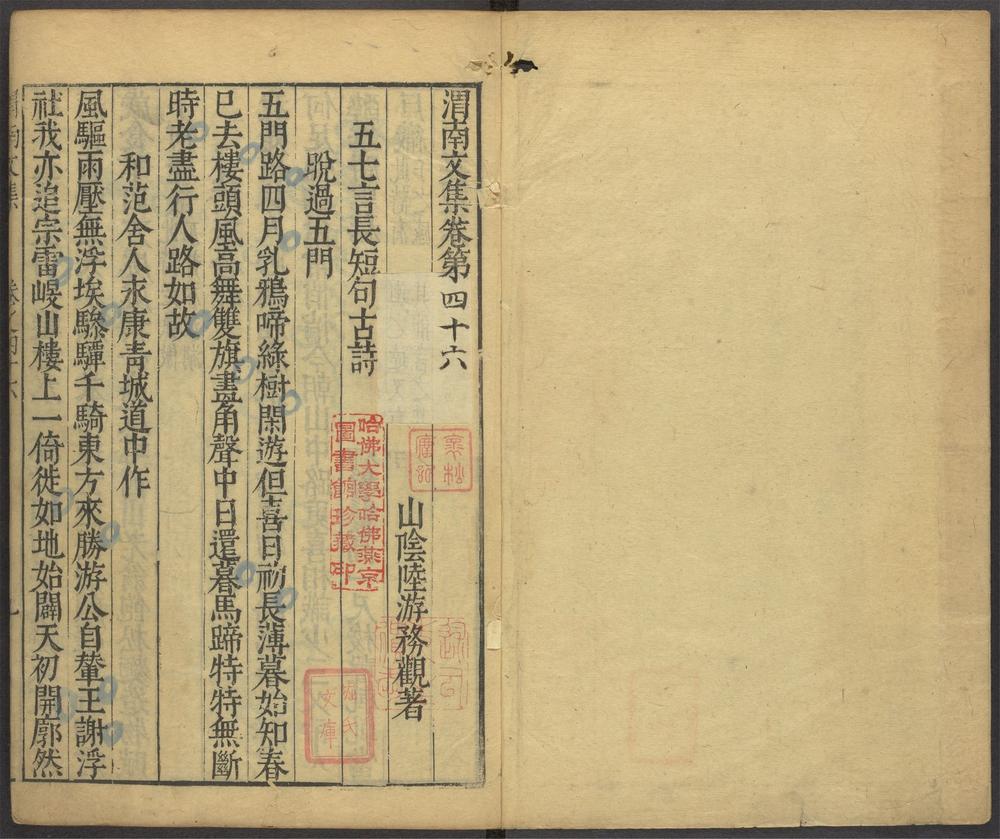 渭南文集卷第四十六
山陰陸游務觀著
五七言長短句古詩
晩過五門
五門路四月乳鴉啼綠樹閑遊但喜日初長薄暮始知春
已去樓頭風高舞雙旗畫角聲中日還暮馬蹄特特無斷
時老盡行人路如故
和范舍人永康青城道中作
風驅雨壓無浮埃驂驔千騎東方來勝游公自輦王謝浮
社我亦追宗雷峻山樓上一倚徙如地始闢天初開廓然
哈佛大學哈佛燕京
圖書館珍藏印